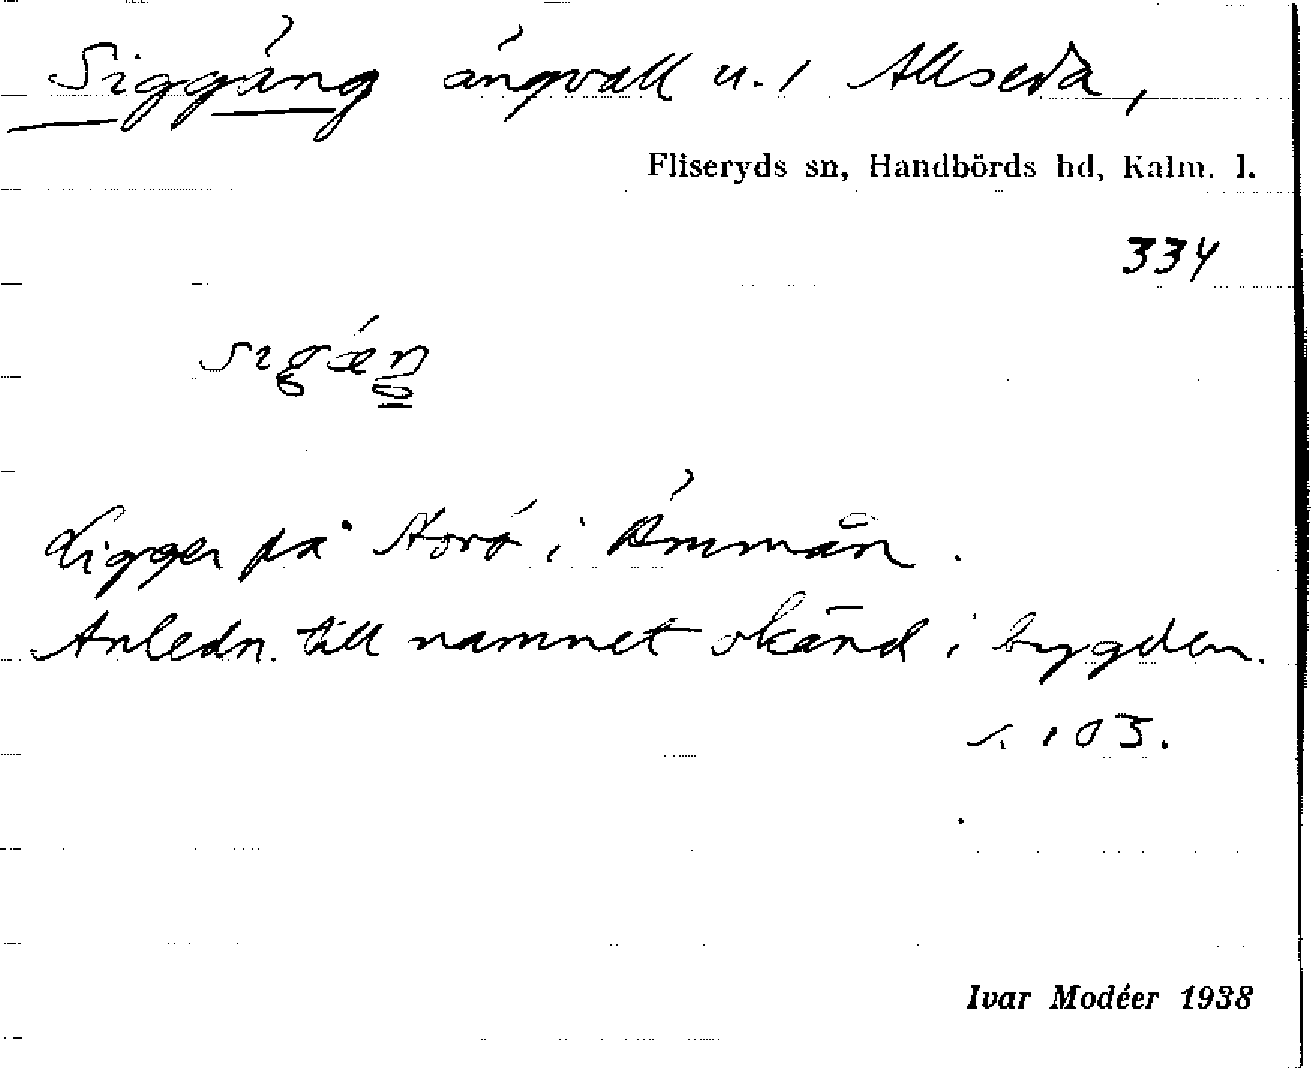 Siggäng ängvall u. 1 Allseda,
Fliseryds sn, Handbörds hd, Kalm. l.
334
Ligger på Storö i Ämmån.
Anledn. till namnet okänd i bygden.
s. 103.
Ivar Modéer 1938